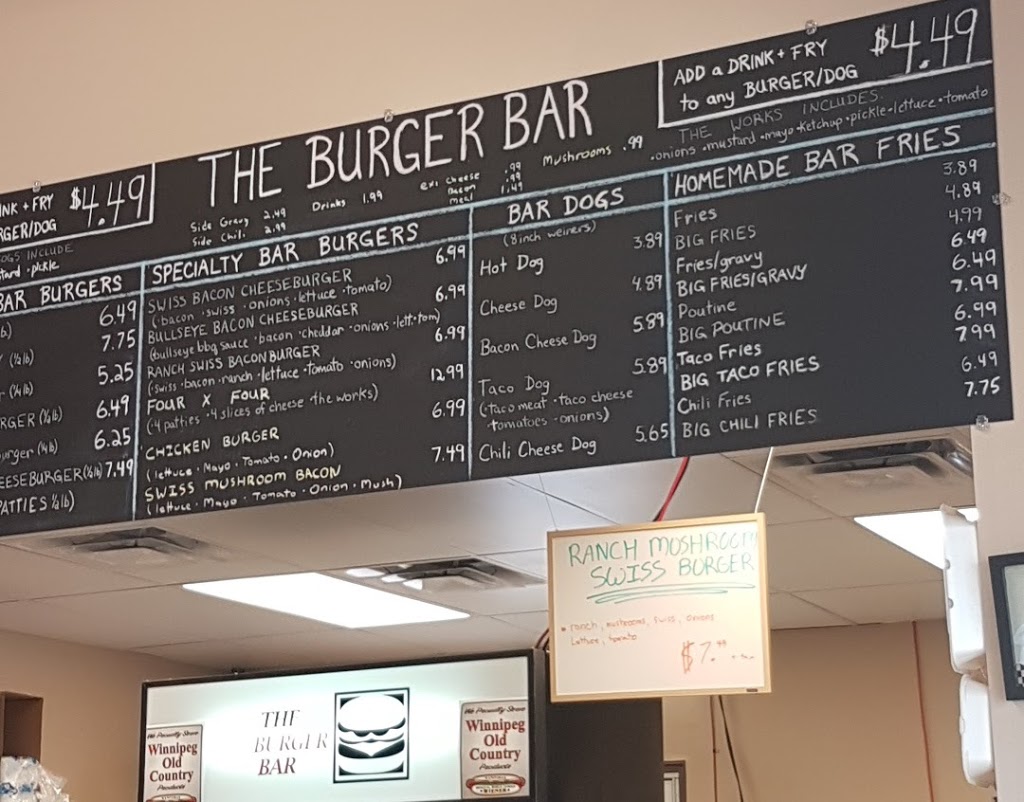 THE BURGER BAR
INK + FRY $4.49
RGER/DOG
OGS INCLUDE
tard · pickle
Side Gravy 2.49
Side Chili 2.99
Drinks 1.99
ex: cheese .99
Bacon .99
meat 1.49
Mushrooms .99
ADD a DRINK + FRY $4.49
to any BURGER/DOG
THE WORKS INCLUDES:
·onions ·mustard ·mayo ·ketchup ·pickle ·lettuce ·tomato
BAR BURGERS
6.49
(½lb) 7.75
(¼lb) 5.25
RGER (½lb) 6.49
urger (¼lb) 6.25
EESEBURGER (½lb) 7.49
PATTIES ½lb)
SPECIALTY BAR BURGERS
SWISS BACON CHEESEBURGER 6.99
(·bacon ·swiss ·onions ·lettuce ·tomato)
BULLSEYE BACON CHEESEBURGER 6.99
(bullseye bbq sauce ·bacon ·cheddar ·onions ·lett ·tom)
RANCH SWISS BACONBURGER 6.99
(swiss ·bacon ·ranch ·lettuce ·tomato ·onions)
FOUR X FOUR 12.99
(·4 patties ·4 slices of cheese the works)
CHICKEN BURGER 6.99
(lettuce · Mayo · Tomato · Onion)
SWISS MUSHROOM BACON 7.49
(lettuce · Mayo · Tomato · Onion · Mush)
BAR DOGS
(8inch weiners)
Hot Dog 3.89
Cheese Dog 4.89
Bacon Cheese Dog 5.89
Taco Dog 5.89
(taco meat ·taco cheese
tomatoes ·onions)
Chili Cheese Dog 5.65
HOMEMADE BAR FRIES
Fries 3.89
BIG FRIES 4.89
Fries/gravy 4.99
BIG FRIES/GRAVY 6.49
Poutine 6.49
BIG POUTINE 7.99
Taco Fries 6.99
BIG TACO FRIES 7.99
Chili Fries 6.49
BIG CHILI FRIES 7.75
RANCH MOSHROOM
SWISS BURGER
ranch, mushrooms, swiss, onions
Lettuce, tomato
$7.99
THE
BURGER
BAR
We Proudly Serve
Winnipeg
Old
Country
Products
We Proudly Serve
Winnipeg
Old
Country
Products
WIENER